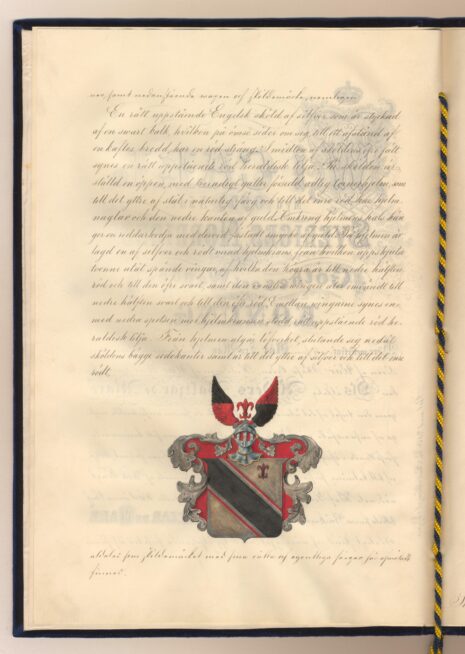 ner, samt nedanstående wapen och sköldemärke, nemligen
En rätt uppstående Engelsk sköld af silfver som är styckad
af en swart balk, hvilken på ömse sidor om sig, till ett afstånd af
en knifs bredd, har en röd sträng. I midten af sköldens öfre fält
synes en rätt uppstående röd heraldisk lilja. På skölden är
ställd en öppen, med galler försedd adlig tornerhjelm, som
till det yttre af stål i naturlig färg och till det inre röd, har hjelm-
naglar och den nedre kanten af guld. Omkring hjelmens hals hän-
ger en riddarkedja med dervid fästadt smycke af guld. På hjelmen är
lagd en af silfver och rödt virad hjelmkrans från hvilken uppskjuta
twenne utåt spända vingar, af hvilka den högra är till nedre hälften
röd och till den öfre svart, samt den venstra vingen åter omvändt till
nedre hälften svart och till den öfre röd. Emellan vingarne synes en,
med nedre spetsen mot hjelmkransen ställd, rätt uppstående röd he-
raldisk lilja. Från hjelmen utgår löfverket, slutande sig nedåt
sköldens bägge sidokanter samt är till det yttre af silfver och till det inre
rödt.
alldeles som sköldemärket med sina rätta och egentliga färger här afmåladt
finnes.